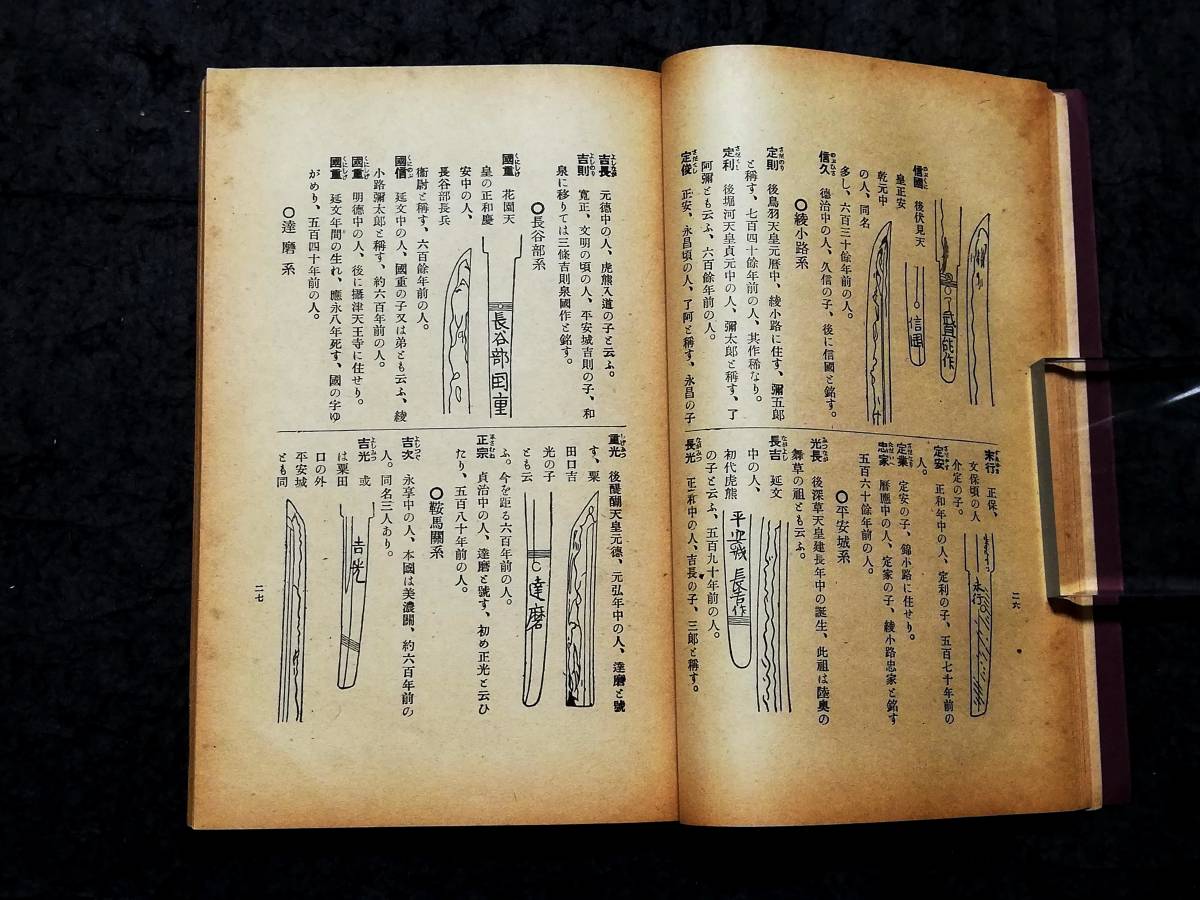 信國 後伏見天
皇正安
乾元中
の人、同名
多し、六百三十餘年前の人。
信久 德治中の人、久信の子、後に信國と銘す。
○綾小路系
定則 後鳥羽天皇元曆中、綾小路に住す、彌五郎
と稱す、七百四十餘年前の人、其作稀なり。
定利 後堀河天皇貞元中の人、彌太郎と稱す、了
阿彌とも云ふ、六百餘年前の人。
定俊 正安、永昌頃の人、了阿と稱す、永昌の子
信国
末行 正保、
文保頃の人
介定の子。
定安 正和年中の人、定利の子、五百七十年前の
人。
定業 定安の子、錦小路に住せり。
忠家 曆應中の人、定家の子、綾小路忠家と銘す
五百六十餘年前の人。
○平安城系
光長 後深草天皇建長年中の誕生、此祖は陸奥の
舞草の祖とも云ふ。
長吉 延文
中の人、
初代虎熊
の子と云ふ、五百九十年前の人。
長光 正和中の人、吉長の子、三郎と稱す。
末行
平安城長吉作
二六
吉長 元德中の人、虎熊入道の子と云ふ。
吉則 寬正、文明の頃の人、平安城吉則の子、和
泉に移りては三條吉則泉國作と銘す。
○長谷部系
國重 花園天
皇の正和慶
安中の人、
長谷部長兵
衞尉と稱す、六百餘年前の人。
國信 延文中の人、國重の子又は弟とも云ふ、綾
小路彌太郎と稱す、約六百年前の人。
國重 明德中の人、後に攝津天王寺に住せり。
國重 延文年間の生れ、應永八年死す、國の字ゆ
がめり、五百四十年前の人。
○達磨系
長谷部国重
重光 後醍醐天皇元德、元弘年中の人、達磨と號
す、粟
田口吉
光の子
とも云
ふ。今を距る六百年前の人。
正宗 貞治中の人、達磨と號す、初め正光と云ひ
たり、五百八十年前の人。
○鞍馬關系
吉次 永享中の人、本國は美濃關、約六百年前の
人。同名三人あり。
吉光 或
は粟田
口の外
平安城
とも同
達磨
吉光
二七